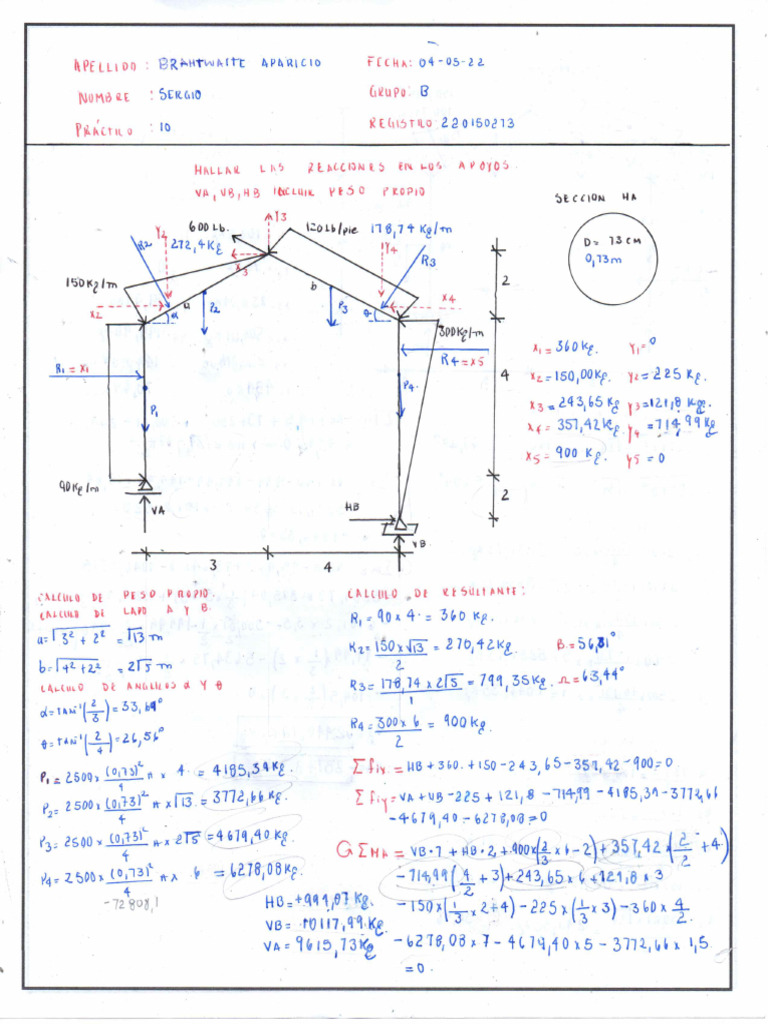 APELLIDO : BRAHTWAITE APARICIO
FECHA: 04-05-22
NOMBRE : SERGIO
GRUPO: B
PRÁCTILO : 10
REGISTRO: 220150273
HALLAR LAS REACCIONES EN LOS APOYOS.
VA, VB, HB INCLUIR PESO PROPIO
SECCION HA
D= 73 CM
0,73m
600Lb.
272,4Kg
Y3
120Lb/pie
178,74Kg/m
Y2
R2
X3
Y4
R3
150Kg/m
a
P2
b
P3
X2
α
θ
X4
300Kg/m
R1 = X1
R4 = X5
P1
P4
90Kg/m
VA
HB
VB
2
4
2
3
4
X1 = 360Kg. Y1= 0
X2=150,00Kg. Y2= 225 Kg
X3= 243,65 Kg Y3=121,8 Kg
X4= 357,42Kg Y4=714,99Kg
X5= 900 Kg. Y5= 0
CALCULO DE PESO PROPIO:
CALCULO DE LADO A Y B.
a=√3²+2² = √13 m
b=√4²+2² = 2√5 m
CALCULO DE ANGULOS α Y θ
α=tan⁻¹(2/3)=33,69°
θ=tan⁻¹(2/4)=26,56°
P1= 2500x(0,73)²/4 π x 4 = 4185,39Kg.
P2= 2500x(0,73)²/4 π x√13 = 3772,66Kg
P3= 2500x(0,73)²/4 π x 2√5 = 4679,40Kg
P4= 2500x(0,73)²/4 π x 6 = 6278,08Kg
CALCULO DE RESULTANTE:
R1= 90x4 = 360 Kg.
R2= 150x√13/2 = 270,42Kg B= 56,31°
R3= 178,74x2√5/1 = 799,35Kg Ω= 63,44°
R4= 300x6/2 = 900Kg
Σfix= HB+360+150-243,65-357,42-900=0
Σfiy= VA+VB-225+121,8-714,99-4185,39-3772,66
-4679,40-6278,08=0
ΣMA= VB·7+HB·2+900x(2/3x6-2)+357,42x(2/2+4)
-714,99(4/2+3)+243,65x6+121,8x3
-150x(1/3x2+4)-225x(1/3x3)-360x4/2
-6278,08x7-4679,40x5-3772,66x1,5
=0
HB=+999,07Kg.
VB= 10117,99Kg
VA= 9615,73Kg